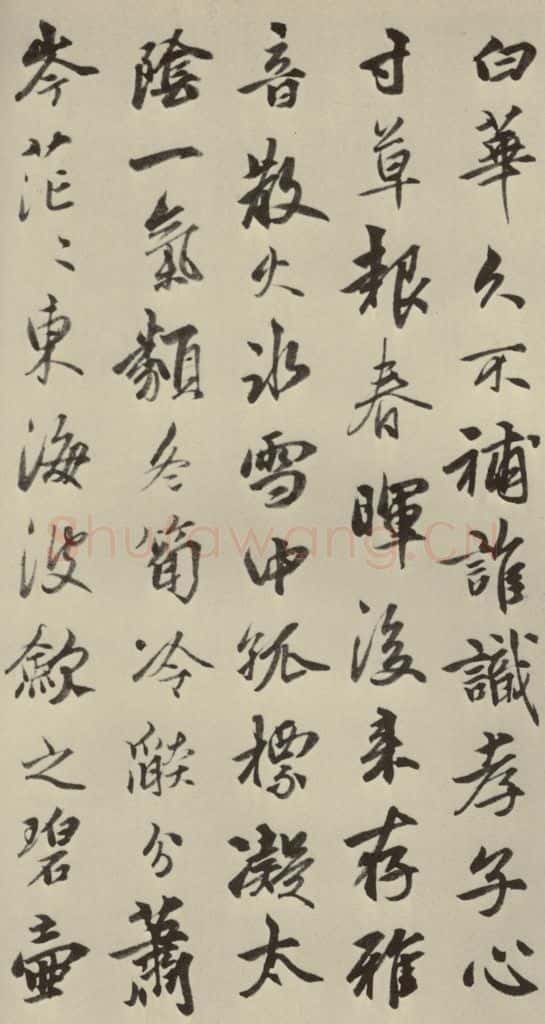 白華久不補誰識孝子心
寸草報春暉後来存雅
音散火冰雪中孤標凝太
陰一氣類冬笱冷談分蕭
岑茫〻東海波斂之碧壺
Shufawang.cn